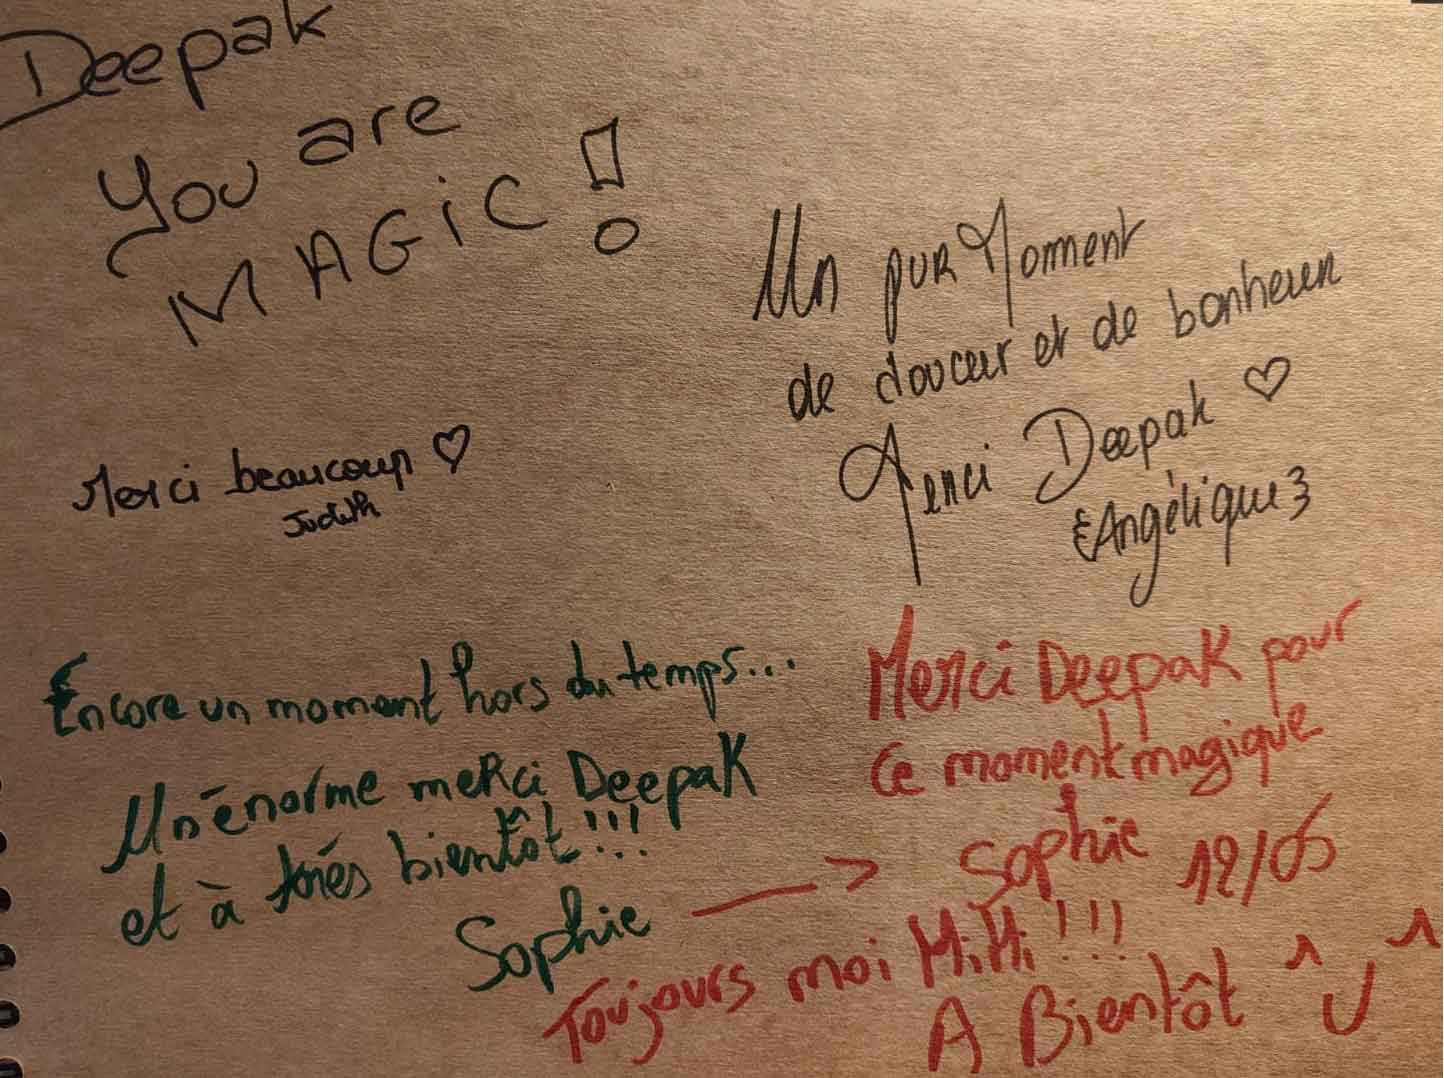 Deepak
You are
MAGiC !
Un pur Moment
de douceur et de bonheur
Merci Deepak ♡
Angélique
Merci beaucoup ♡
Judith
Encore un moment hors du temps...
Un énorme merci Deepak
et à très bientôt !!!
Sophie
Merci Deepak pour
ce moment magique
Sophie 12/05
Toujours moi HiHi !!!
A Bientôt